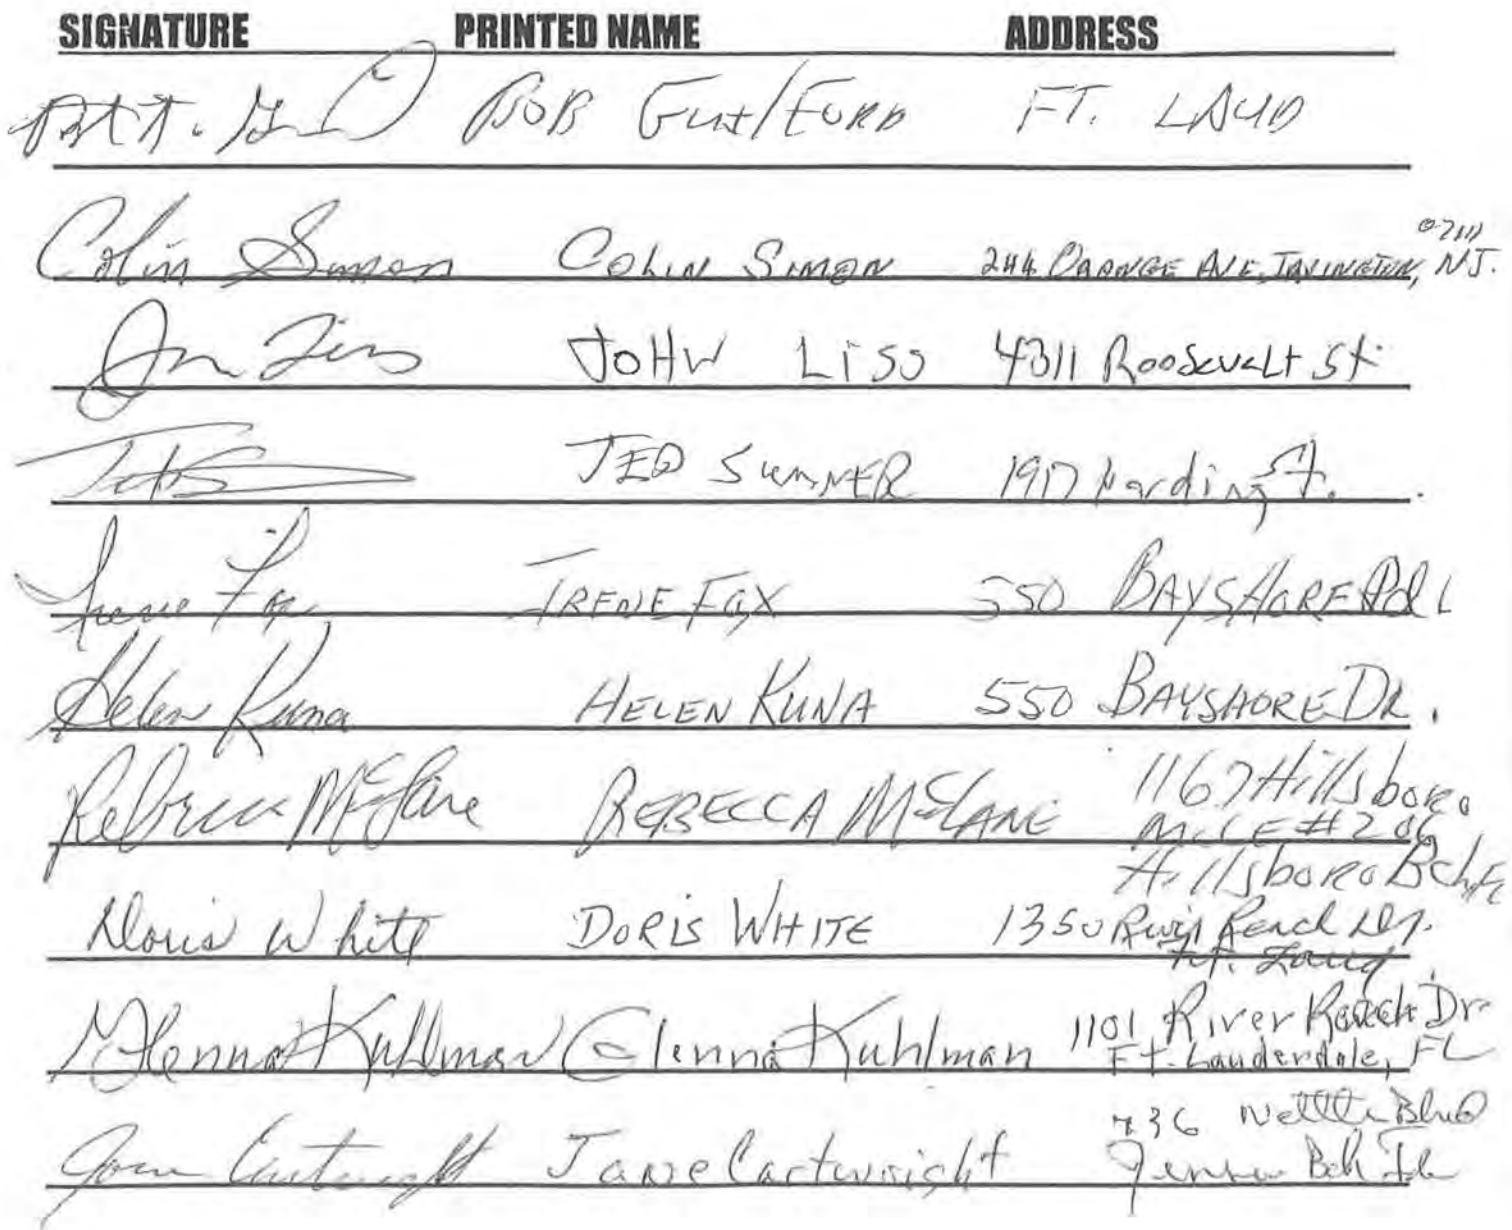 SIGNATURE PRINTED NAME ADDRESS
BOB FT. LAUD
Colin Simon COLIN SIMON 244 ORANGE AVE, IRVINGTON, NJ.
07111
JOHN LISS 4311 Roosevelt St
TED SUMNER 1917 Harding St.
Irene Fox IRENE FOX 550 BAYSHORE
Helen Kuna HELEN KUNA 550 BAYSHORE DR.
Rebecca McLane REBECCA McLANE 1167 Hillsboro
MILE #206
Hillsboro Bch, FL
Doris White DORIS WHITE 1350 River Reach Dr.
Ft. Laud
Glenna Kuhlman Glenna Kuhlman 1101 River Reach Dr
Ft. Lauderdale, FL
Cartwright Jane Cartwright 736 Blvd
Bch Fla